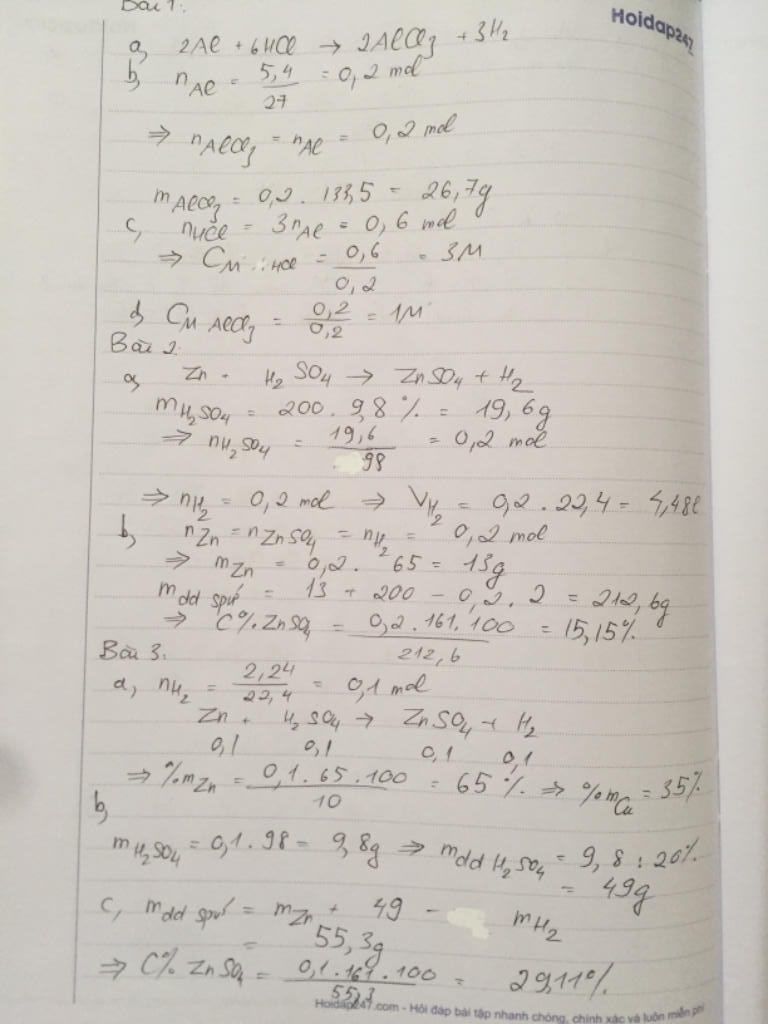 Bài 1:
Hoidap247
a, 2Al + 6HCl → 2AlCl₃ + 3H₂
b, nAl = 5,4/27 = 0,2 mol
⇒ nAlCl₃ = nAl = 0,2 mol
mAlCl₃ = 0,2 . 133,5 = 26,7g
c, nHCl = 3nAl = 0,6 mol
⇒ CM HCl = 0,6/0,2 = 3M
d, CM AlCl₃ = 0,2/0,2 = 1M
Bài 2:
a, Zn + H₂SO₄ → ZnSO₄ + H₂
mH₂SO₄ = 200 . 9,8% = 19,6g
⇒ nH₂SO₄ = 19,6/98 = 0,2 mol
⇒ nH₂ = 0,2 mol ⇒ VH₂ = 0,2 . 22,4 = 4,48l
b, nZn = nZnSO₄ = nH₂ = 0,2 mol
⇒ mZn = 0,2 . 65 = 13g
mdd spứ = 13 + 200 - 0,2 . 2 = 212,6g
⇒ C% ZnSO₄ = 0,2.161.100/212,6 = 15,15%
Bài 3:
a, nH₂ = 2,24/22,4 = 0,1 mol
Zn + H₂SO₄ → ZnSO₄ + H₂
0,1 0,1 0,1 0,1
⇒ %mZn = 0,1.65.100/10 = 65% ⇒ %mCu = 35%
b,
mH₂SO₄ = 0,1 . 98 = 9,8g ⇒ mdd H₂SO₄ = 9,8 : 20%
= 49g
c, mdd spứ = mZn + 49 - mH₂
= 55,3g
⇒ C% ZnSO₄ = 0,1.161.100/55,3 = 29,11%
Hoidap247.com - Hỏi đáp bài tập nhanh chóng, chính xác và luôn miễn phí